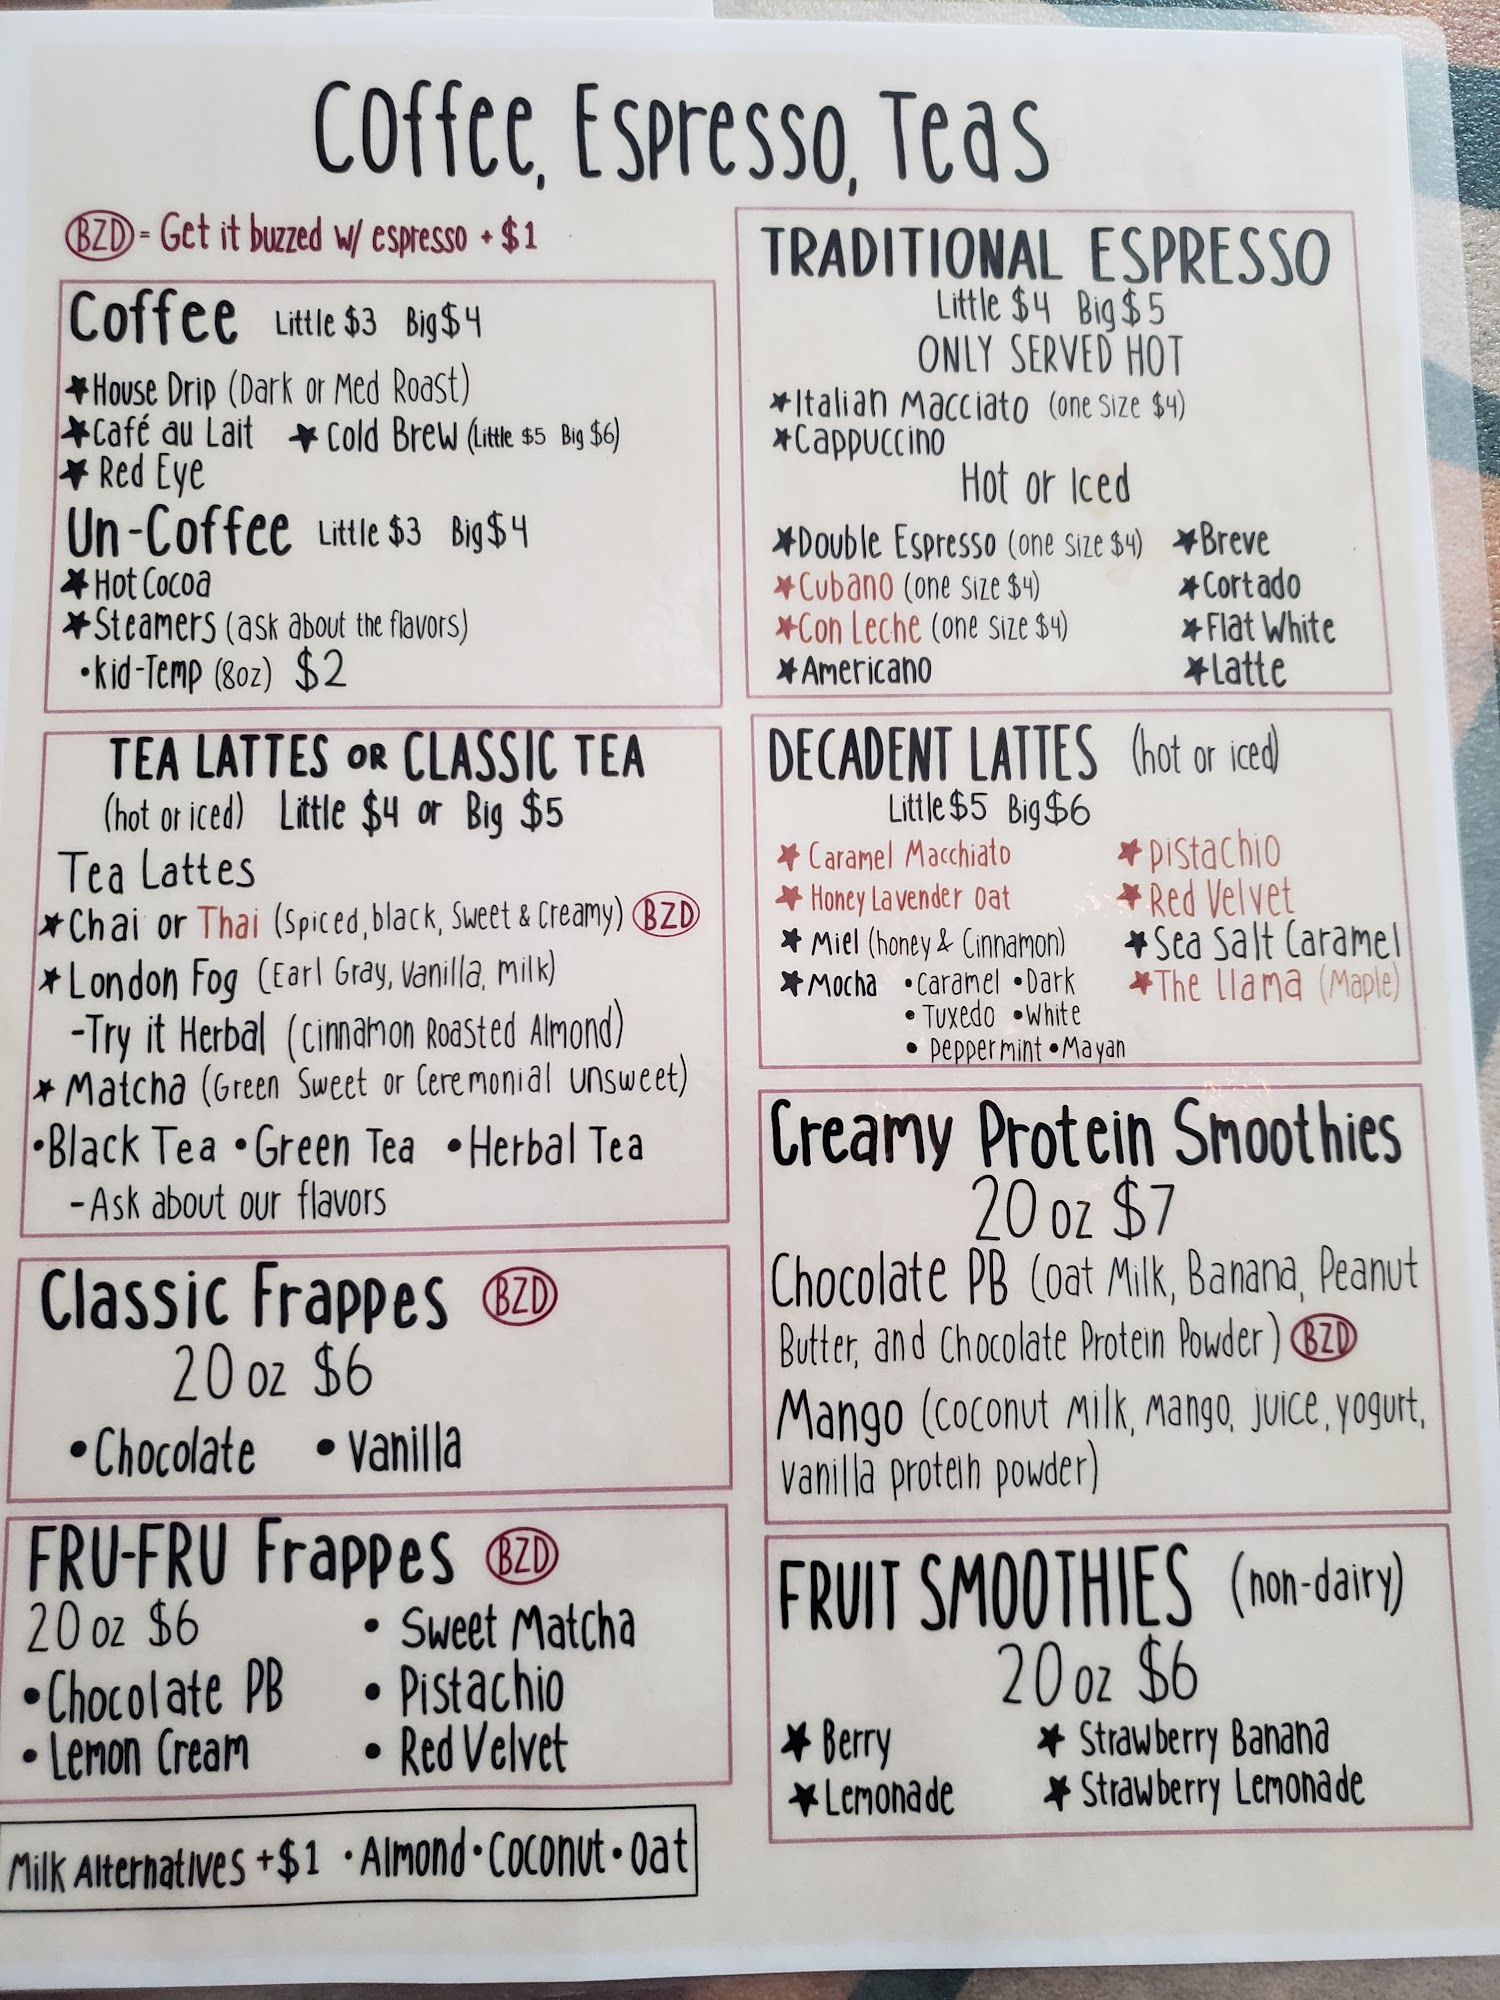 Coffee, Espresso, Teas
BZD = Get it buzzed w/ espresso + $1
Coffee Little $3 Big $4
★House Drip (Dark or Med Roast)
★Café au Lait ★Cold Brew (Little $5 Big $6)
★Red Eye
Un-Coffee Little $3 Big $4
★Hot Cocoa
★Steamers (ask about the flavors)
•Kid-Temp (8oz) $2
TEA LATTES OR CLASSIC TEA
(hot or iced) Little $4 or Big $5
Tea Lattes
★Chai or Thai (Spiced, black, Sweet & Creamy) BZD
★London Fog (Earl Gray, Vanilla, milk)
-Try it Herbal (Cinnamon Roasted Almond)
★Matcha (Green Sweet or Ceremonial unsweet)
•Black Tea •Green Tea •Herbal Tea
-Ask about our flavors
Classic Frappes BZD
20 oz $6
•Chocolate •Vanilla
FRU-FRU Frappes BZD
20 oz $6 •Sweet Matcha
•Chocolate PB •Pistachio
•Lemon Cream •Red Velvet
Milk Alternatives +$1 •Almond•Coconut•Oat
TRADITIONAL ESPRESSO
Little $4 Big $5
ONLY SERVED HOT
★Italian Macciato (one size $4)
★Cappuccino
Hot or Iced
★Double Espresso (one size $4) ★Breve
★Cubano (one size $4) ★Cortado
★Con Leche (one size $4) ★Flat White
★Americano ★Latte
DECADENT LATTES (hot or iced)
Little $5 Big $6
★Caramel Macchiato ★Pistachio
★Honey Lavender Oat ★Red Velvet
★Miel (honey & Cinnamon) ★Sea Salt Caramel
★Mocha •Caramel •Dark ★The Llama (Maple)
•Tuxedo •White
•Peppermint •Mayan
Creamy Protein Smoothies
20 oz $7
Chocolate PB (Oat Milk, Banana, Peanut
Butter, and Chocolate Protein Powder) BZD
Mango (coconut milk, mango, juice, yogurt,
vanilla protein powder)
FRUIT SMOOTHIES (non-dairy)
20 oz $6
★Berry ★Strawberry Banana
★Lemonade ★Strawberry Lemonade